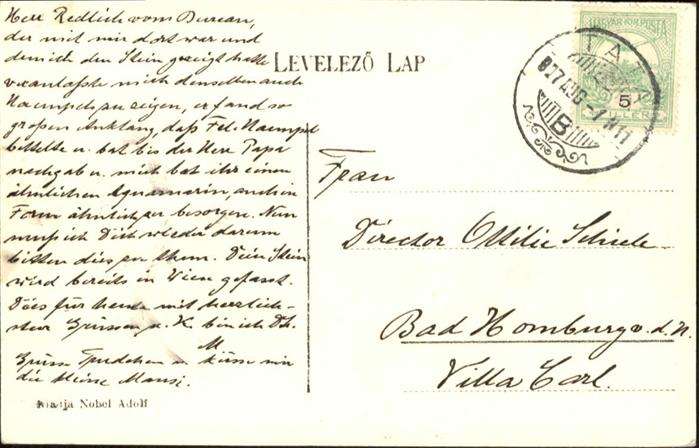 Herr Redlich vom Bureau,
der mit mir dort war und
dem ich den Stein gezeigt hatte
veranlaßte mich denselben auch
zu zeigen, er fand so
großen Anklang, daß Frl.
bettelte u. bat bis der Herr Papa
nachgab u. mich bat ihr einen
ähnlichen Aquamarin, auch in
Form ähnlich zu besorgen. Nun
muß ich Dich wieder darum
bitten dies zu thun. Dein Stein
wird bereits in Wien gefasst.
Dies für heute mit herzlich-
sten Grüssen u. K. bin ich Dh.
M
Grüsse Trudchen u. küsse mir
die kleine Mausi.
Kiadja Nobel Adolf
LEVELEZŐ LAP
MAGYAR KIR. POSTA
5
B
Frau
Director Ottilie Schiele
Bad Homburg v. d. H.
Villa Carl.